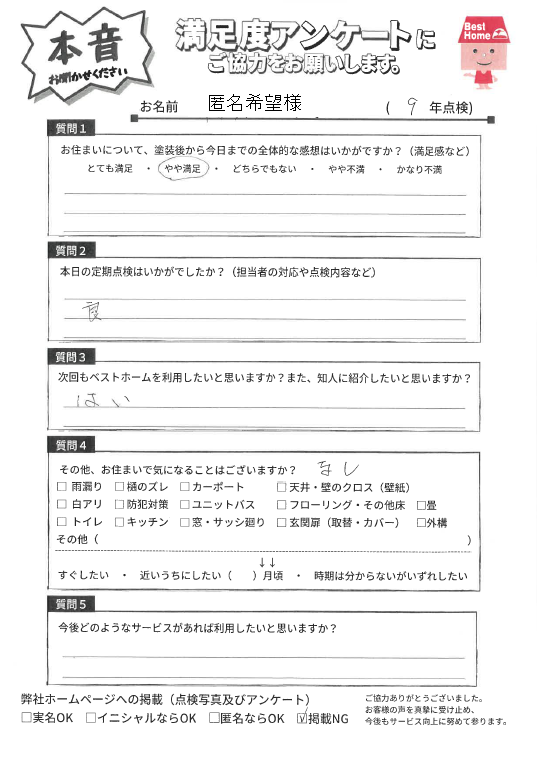 本音
お聞かせください
満足度アンケートに
ご協力をお願いします。
Best
Home
お名前 匿名希望様 ( 9 年点検)
質問1
お住まいについて、塗装後から今日までの全体的な感想はいかがですか？（満足感など）
とても満足 ・ やや満足 ・ どちらでもない ・ やや不満 ・ かなり不満
質問2
本日の定期点検はいかがでしたか？（担当者の対応や点検内容など）
良
質問3
次回もベストホームを利用したいと思いますか？また、知人に紹介したいと思いますか？
はい
質問4
その他、お住まいで気になることはございますか？ なし
□ 雨漏り □樋のズレ □カーポート □天井・壁のクロス（壁紙）
□ 白アリ □防犯対策 □ユニットバス □フローリング・その他床 □畳
□ トイレ □キッチン □窓・サッシ廻り □玄関扉（取替・カバー） □外構
その他（ ）
↓↓
すぐしたい ・ 近いうちにしたい（ ）月頃 ・ 時期は分からないがいずれしたい
質問5
今後どのようなサービスがあれば利用したいと思いますか？
弊社ホームページへの掲載（点検写真及びアンケート）
□実名OK □イニシャルならOK □匿名ならOK ☑掲載NG
ご協力ありがとうございました。
お客様の声を真摯に受け止め、
今後もサービス向上に努めて参ります。